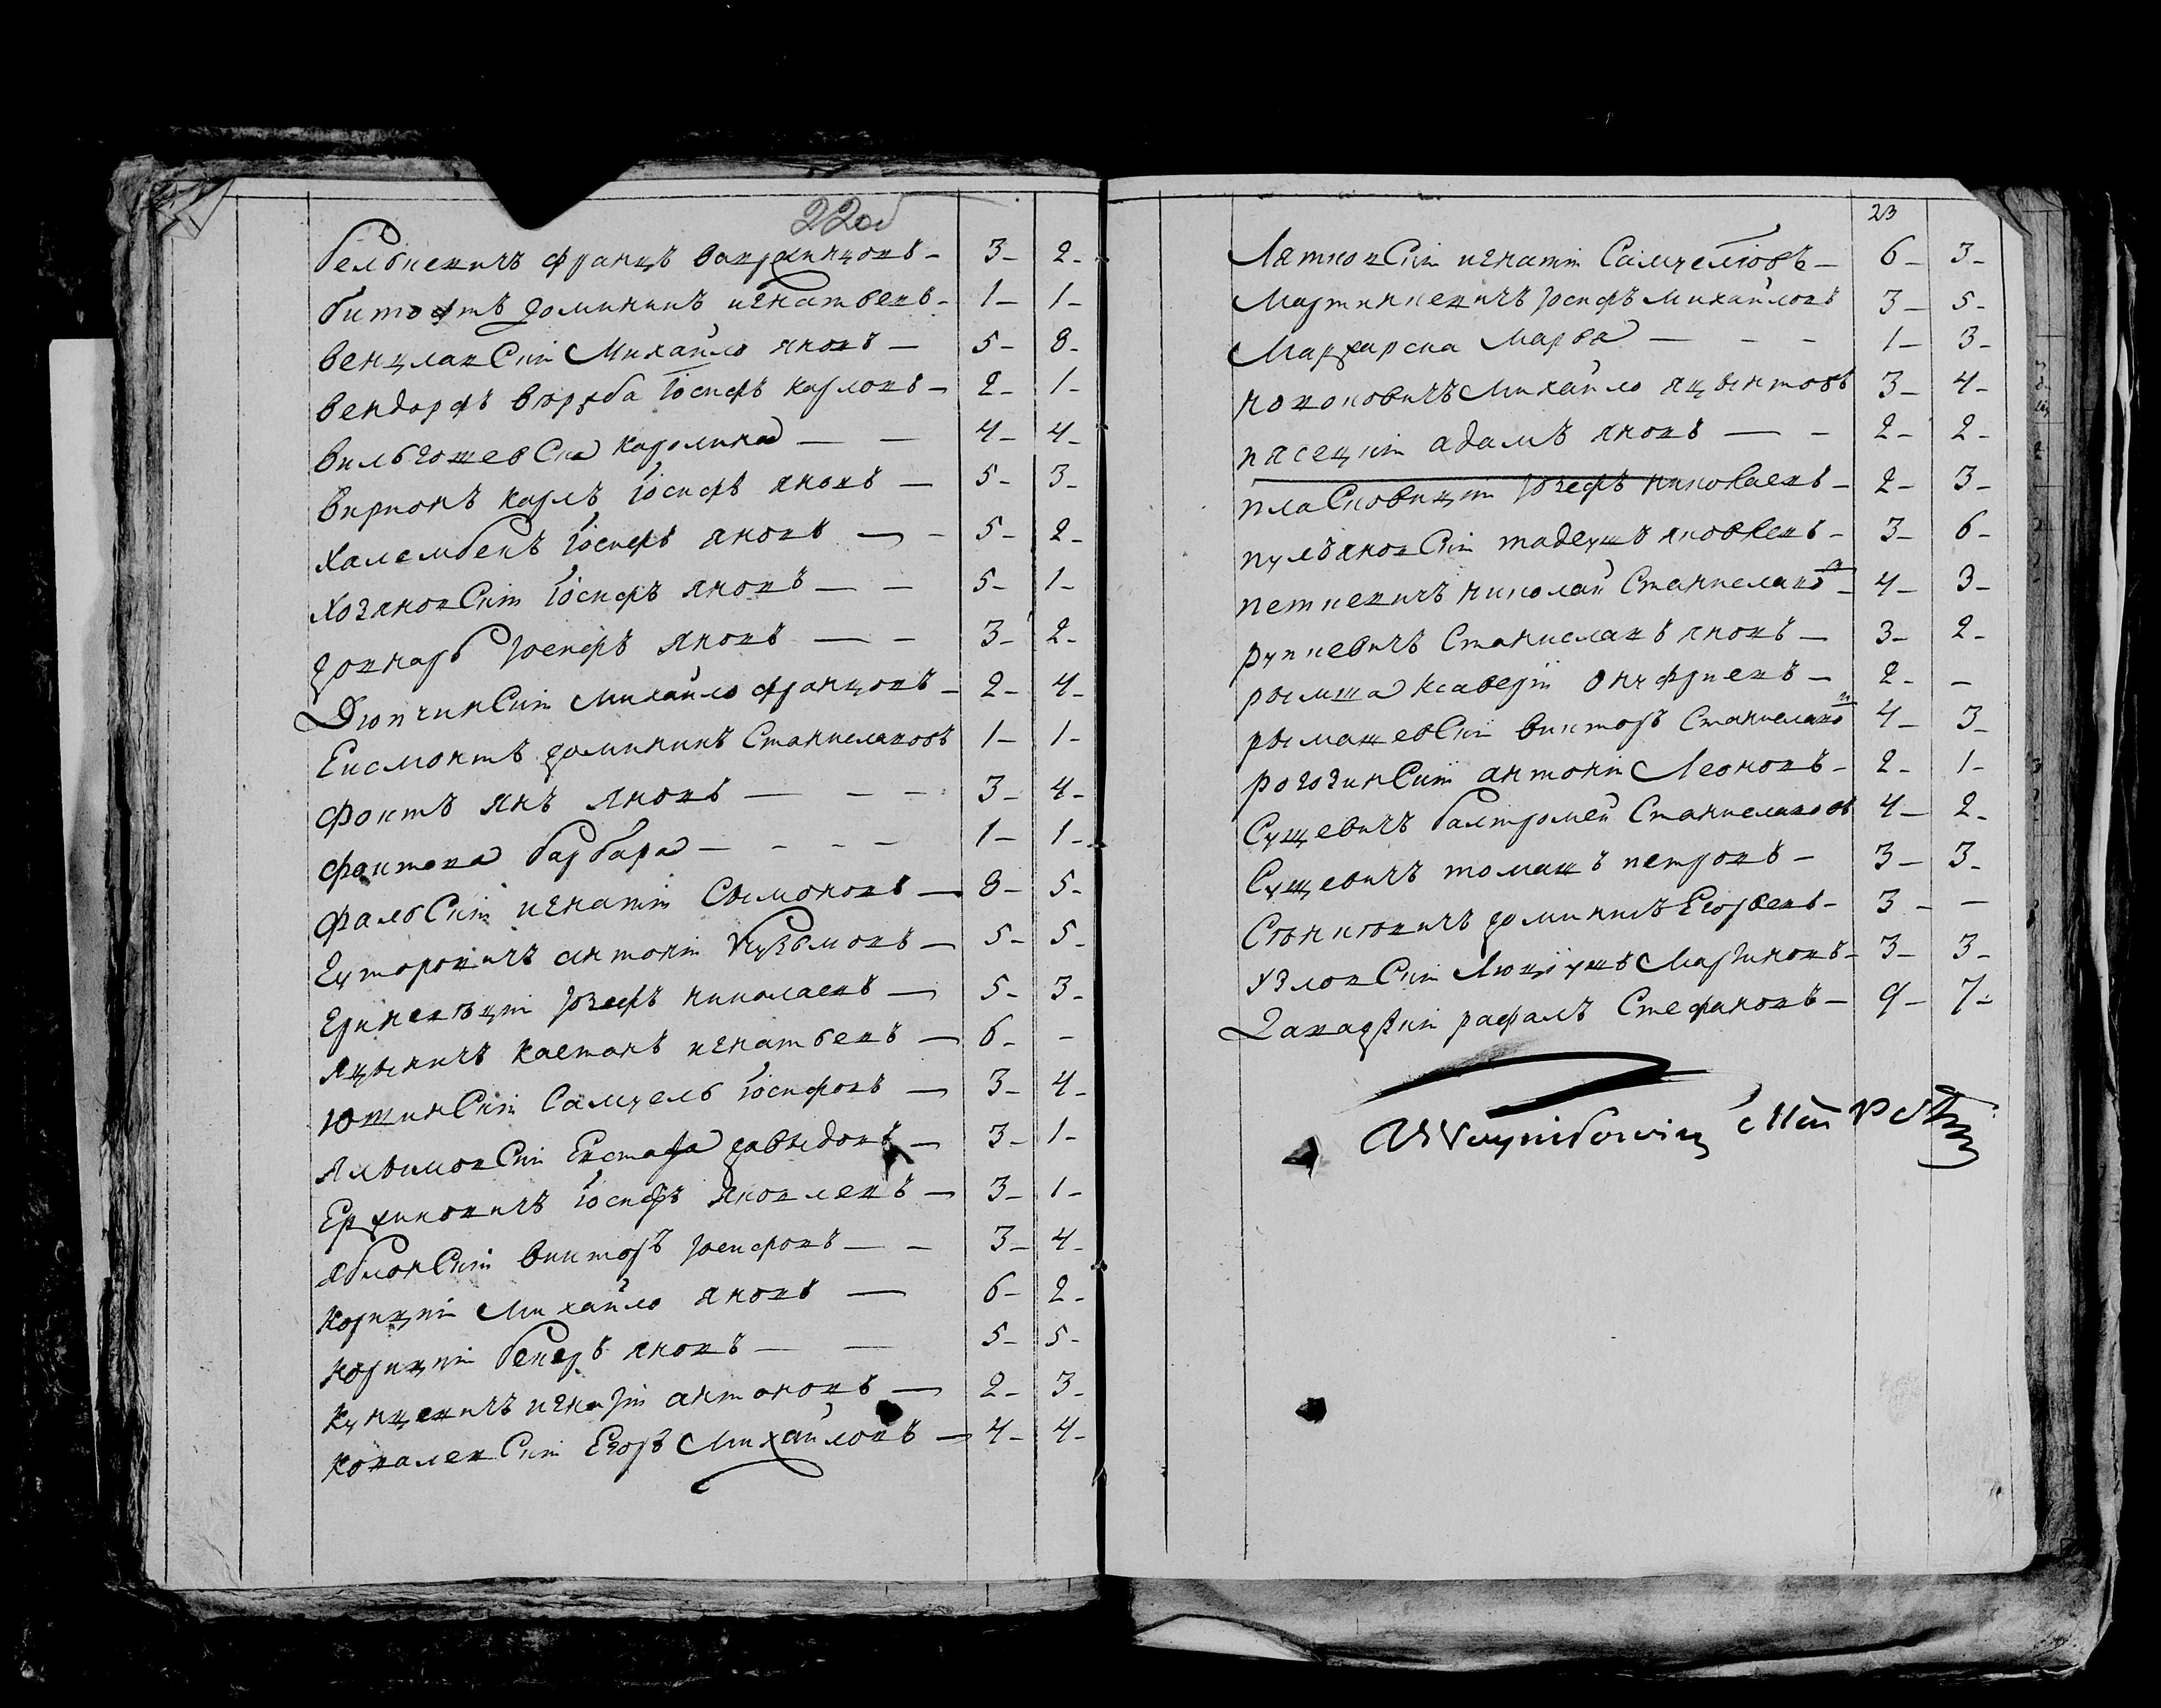 22 об
Бельскевичъ Францъ Вавржинцовъ — 3 — 2 —
Битофтъ Доминикъ Игнатьевъ — 1 — 1 —
Венцлавский Михайло Яновъ — 5 — 8 —
Вендорфъ Воруба Іосифъ Карловъ — 2 — 1 —
Вильгошевска Каролина — — 4 — 4 —
Вирионъ Карлъ Іосифъ Яновъ — 5 — 3 —
Халембекъ Іосифъ Яновъ — — 5 — 2 —
Хозяновский Іосифъ Яновъ — — 5 — 1 —
Іосифъ Яновъ — — 3 — 2 —
Михайло Францовъ — 2 — 4 —
Еисмонтъ Доминикъ Станиславовъ 1 — 1 —
Фоктъ Янъ Яновъ — — — 3 — 4 —
Барбара — — — — 1 — 1 —
Фальский Игнатий Сымоновъ — 8 — 5 —
Гуторовичъ Антоній Кузьмовъ — 5 — 5 —
Юзефъ Николаевъ — 5 — 3 —
Яцыничъ Каетанъ Игнатьевъ — 6 — —
Юшинский Самуель Іосифовъ — 3 — 4 —
Евстафа Давыдовъ — 3 — 1 —
Ержиковичъ Іосифъ Яковлевъ — 3 — 1 —
Яблонский Викторъ Іосифовъ — — 3 — 4 —
Корицкий Михайло Яновъ — 6 — 2 —
Корицкий Яновъ — — 5 — 5 —
Кунцевичъ Игнатий Антоновъ — 2 — 3 —
Ковалевский Егоръ Михайловъ — 4 — 4 —
23
Лятковский Игнатий Самуелювъ — 6 — 3 —
Мартинкевичъ Іосифъ Михайловъ 3 — 5 —
Марва — — — 1 — 3 —
Михайло Яцынтовъ 3 — 4 —
Пясецкий Адамъ Яновъ — — 2 — 2 —
Пласковицкий Юзефъ Николаевъ — 2 — 3 —
Пульяновский Тадеушъ Яковлевъ — 3 — 6 —
Петкевичъ Николай Станиславовъ — 4 — 3 —
Рупкевичъ Станиславъ Яновъ — 3 — 2 —
Рымша Ксаверій Онуфриевъ — 2 — —
Рымашевский Викторъ Станиславовъ 4 — 3 —
Рогозинский Антоній Леоновъ — 2 — 1 —
Сущевичъ Балтромей Станиславовъ 4 — 2 —
Сущевичъ Томашъ Петровъ — 3 — 3 —
Доминикъ Егорьевъ — 3 — —
Узловский Мартиновъ — 3 — 3 —
Рафалъ Стефановъ — 9 — 7 —